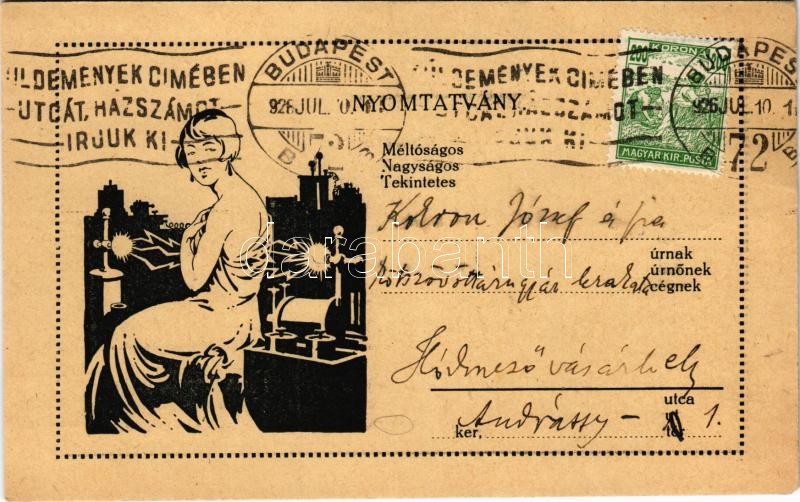 ÜLDEMÉNYEK CIMÉBEN
UTCÁT, HÁZSZÁMOT
IRJUK KI
BUDAPEST
926 JUL. 10.
72
ÜLDEMÉNYEK CIMÉBEN
UTCÁT, HÁZSZÁMOT
IRJUK KI
BUDAPEST
926 JUL. 10. 1
72
200 KORONA
MAGYAR KIR. POSTA
NYOMTATVÁNY.
Méltóságos
Nagyságos
Tekintetes
József és fia
úrnak
úrnőnek
cégnek
kötszövöttárugyár lerakata
Hódmezővásárhely
utca
Andrássy - 1.
ker, tér
darabanth